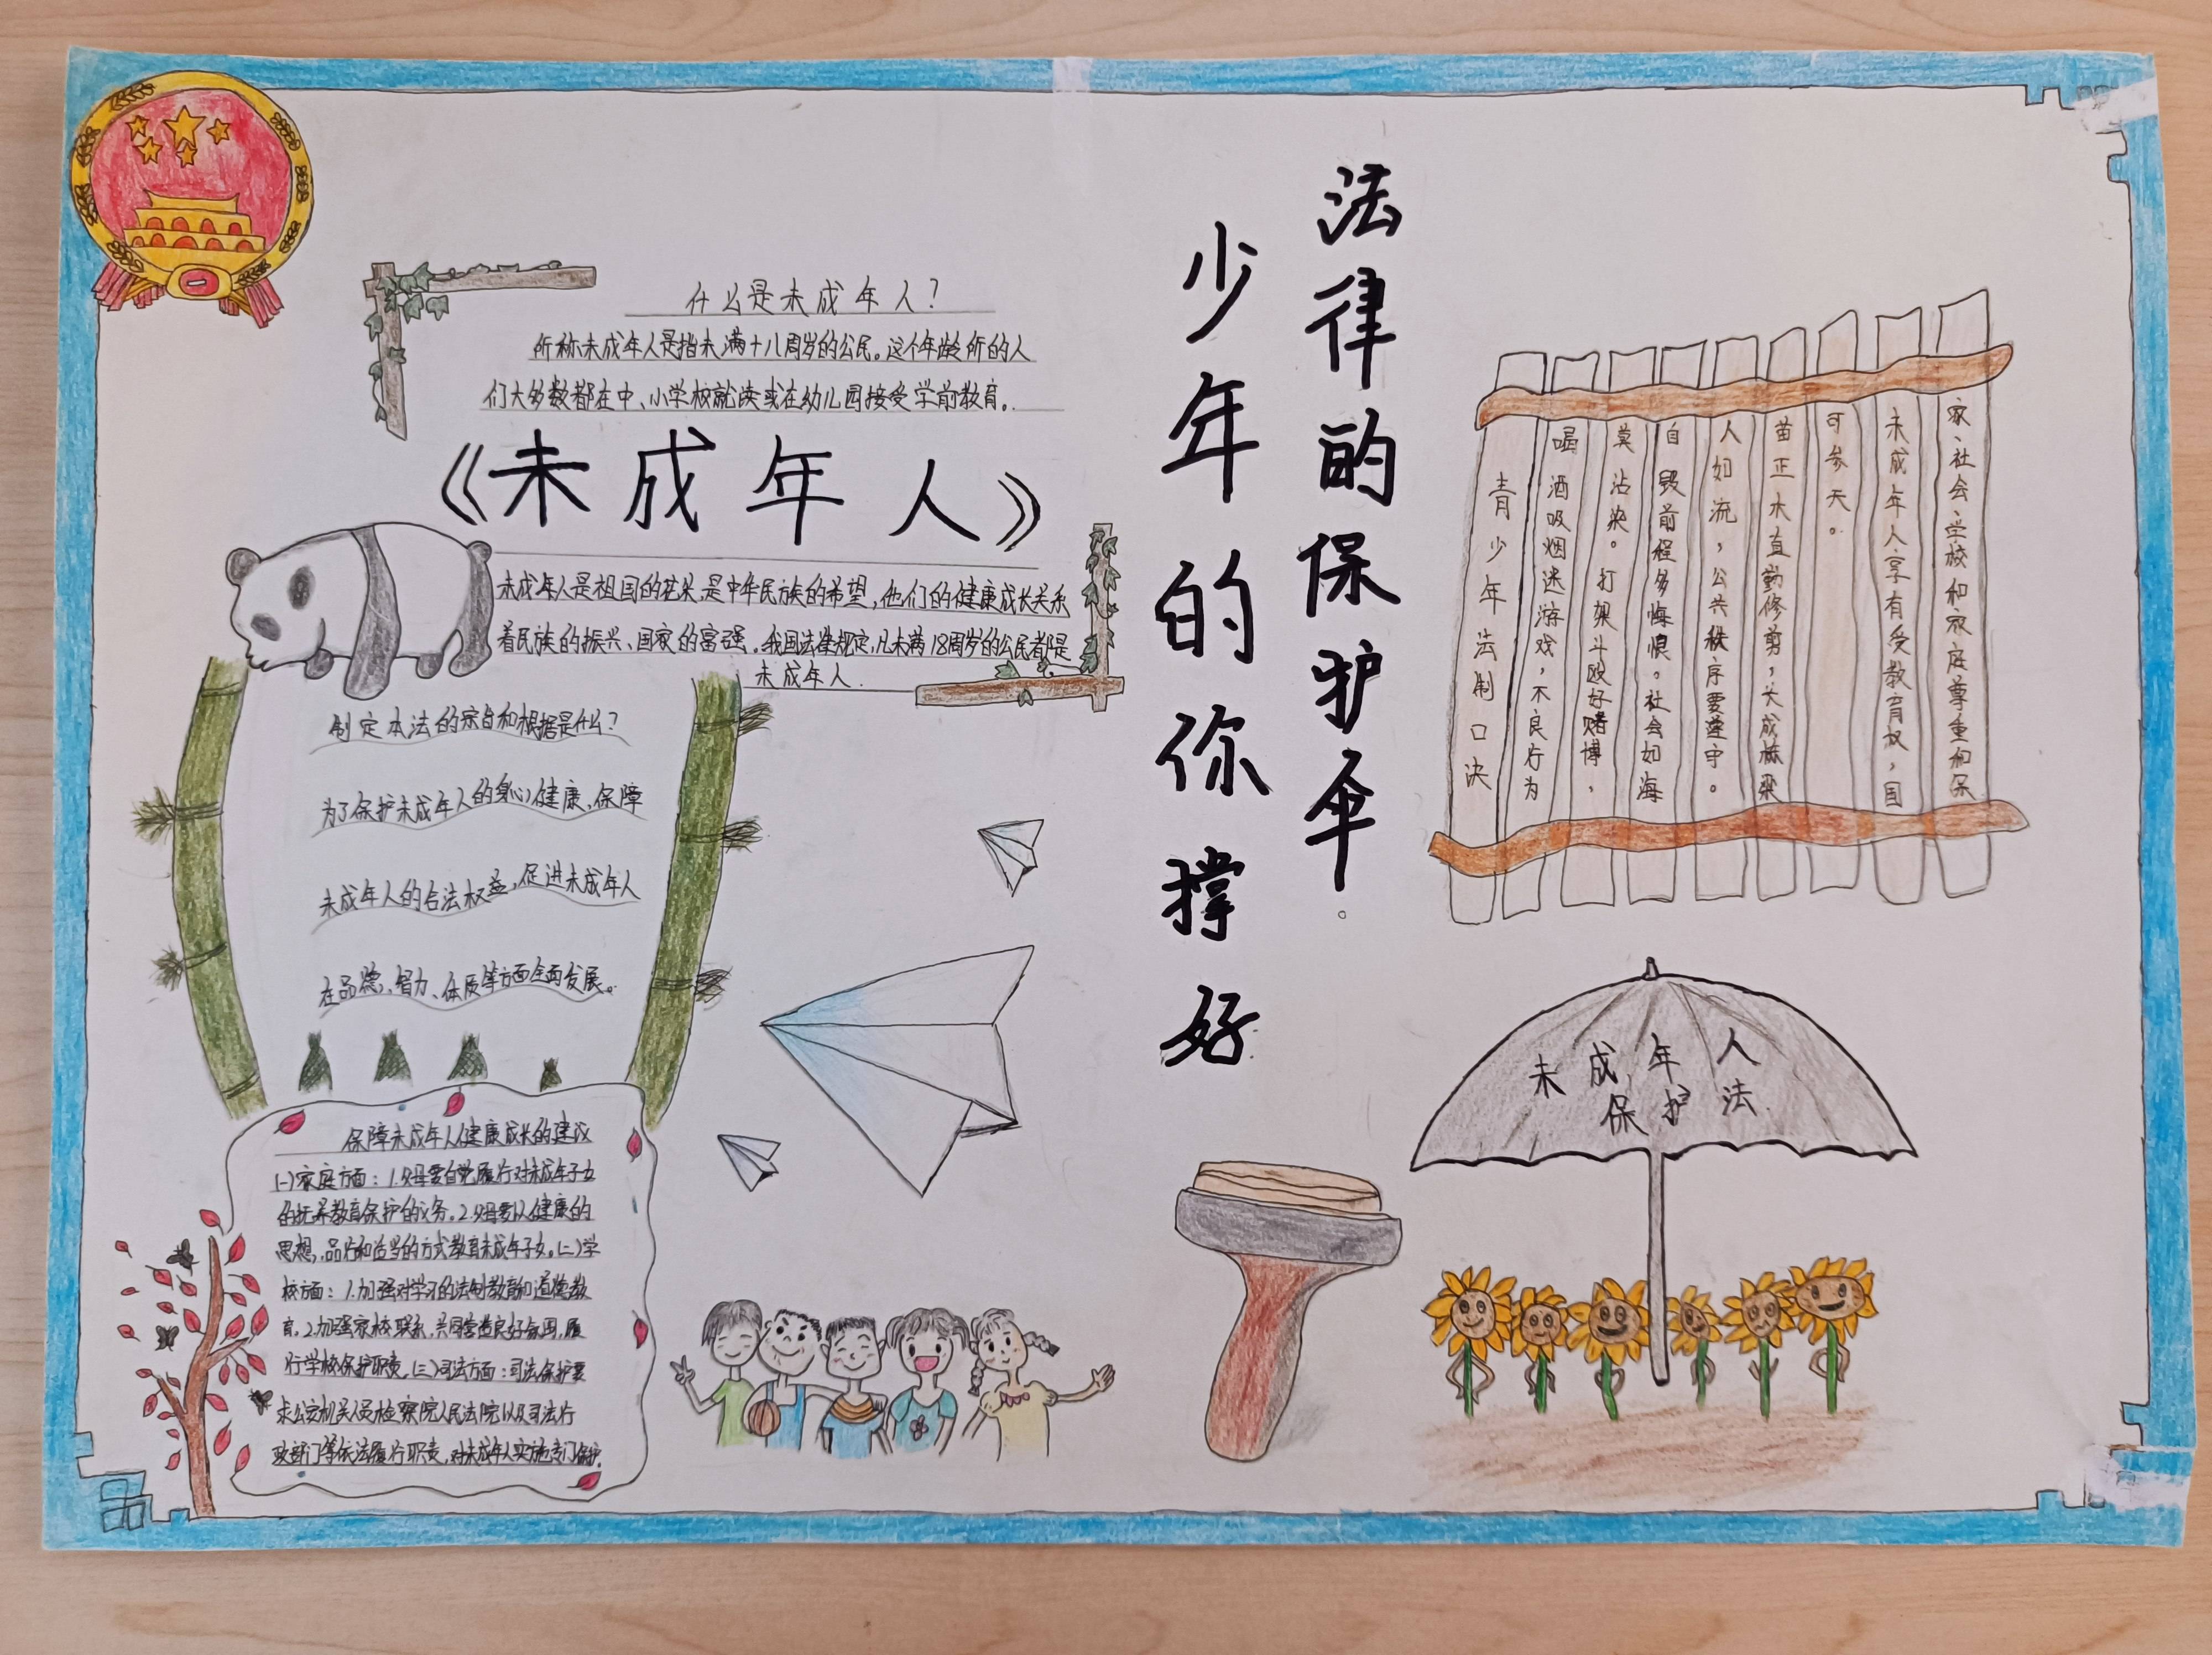 什么是未成年人？
所称未成年人是指未满十八周岁的公民。这个年龄所的人
们大多数都在中、小学校就读或在幼儿园接受学前教育。
《未成年人》
未成年人是祖国的花朵，是中华民族的希望，他们的健康成长关系
着民族的振兴、国家的富强。我国法律规定，凡未满18周岁的公民都是
未成年人.
制定本法的宗旨和根据是什么？
为了保护未成年人的身心健康，保障
未成年人的合法权益，促进未成年人
在品德、智力、体质等方面全面发展。
保障未成年人健康成长的建议
(一)家庭方面：1.父母要自觉履行对未成年子女
的抚养教育保护的义务。2.父母要以健康的
思想，品行和适当的方式教育未成年子女。(二)学
校方面：1.加强对学习的法制教育和道德教
育。2.加强家校联系，共同营造良好氛围，履
行学校保护职责。(三)司法方面：司法保护要
求公安机关人员检察院人民法院以及司法行
政部门等依法履行职责，对未成年人实施专门保护。
法律的保护伞。
少年的你撑好
青少年法制口决
喝酒吸烟迷游戏，不良行为
莫沾染。打架斗殴好赌博，
自毁前程多悔恨。社会如海
人如流，公共秩序要遵守。
苗正木直勤修剪，长成栋梁
可参天。
未成年人享有受教育权，国
家、社会、学校和家庭尊重和保
未成年人
保护法